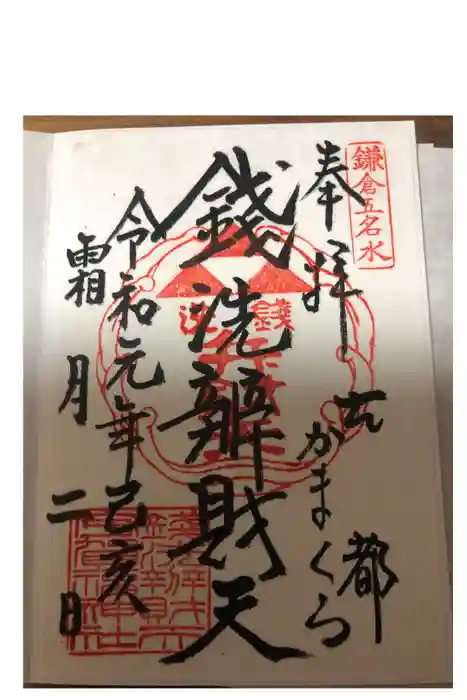 鎌倉五名水
奉拝
古都
かまくら
銭洗
錢洗辨財天
令和元年己亥
霜月二日